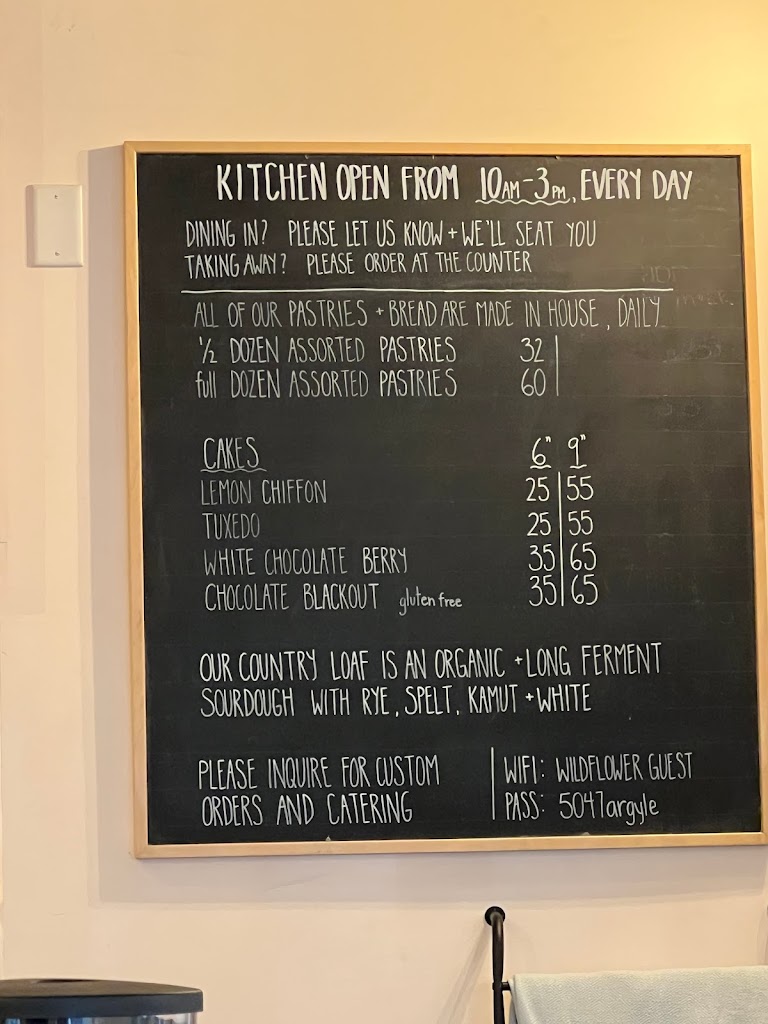 KITCHEN OPEN FROM 10AM-3PM, EVERY DAY
DINING IN? PLEASE LET US KNOW + WE'LL SEAT YOU
TAKING AWAY? PLEASE ORDER AT THE COUNTER
ALL OF OUR PASTRIES + BREAD ARE MADE IN HOUSE, DAILY
1/2 DOZEN ASSORTED PASTRIES 32
full DOZEN ASSORTED PASTRIES 60
CAKES 6" 9"
LEMON CHIFFON 25 55
TUXEDO 25 55
WHITE CHOCOLATE BERRY 35 65
CHOCOLATE BLACKOUT gluten free 35 65
OUR COUNTRY LOAF IS AN ORGANIC + LONG FERMENT
SOURDOUGH WITH RYE, SPELT, KAMUT + WHITE
PLEASE INQUIRE FOR CUSTOM
ORDERS AND CATERING
WIFI: WILDFLOWER GUEST
PASS: 5047argyle